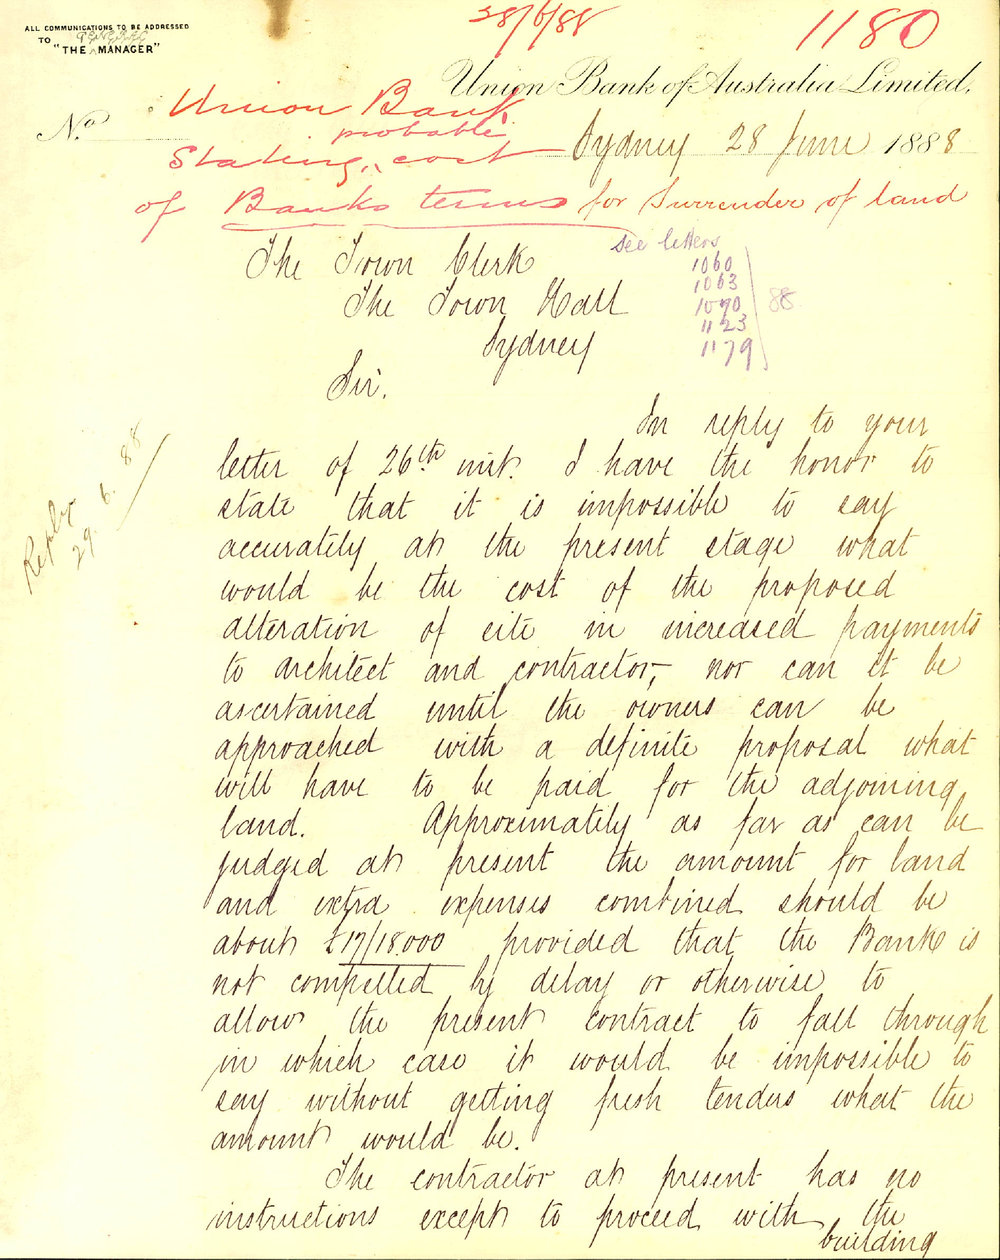 28/6/88
1180
ALL COMMUNICATIONS TO BE ADDRESSED
TO GENERAL
"THE ^ MANAGER"
Union Bank of Australia Limited.
No.
Union Bank
probable
Stating ^ cost
Sydney 28 June 1888
of Banks terms for Surrender of land
The Town Clerk
The Town Hall
Sydney
see letters
1060
1063
1070
1123
1179
88.
Sir.
Reply
29. 6. 88
In reply to your
letter of 26th inst. I have the honor to
state that it is impossible to say
accurately at the present stage what
would be the cost of the proposed
alteration of site in increased payments
to architect and contractor, nor can it be
ascertained until the owners can be
approached with a definite proposal what
will have to be paid for the adjoining
land. Approximately as far as can be
judged at present the amount for land
and extra expenses combined should be
about £17/18.000 provided that the Bank is
not compelled by delay or otherwise to
allow the present contract to fall through
in which case it would be impossible to
say without getting fresh tenders what the
amount would be.
The contractor at present has no
instructions except to proceed with the
building